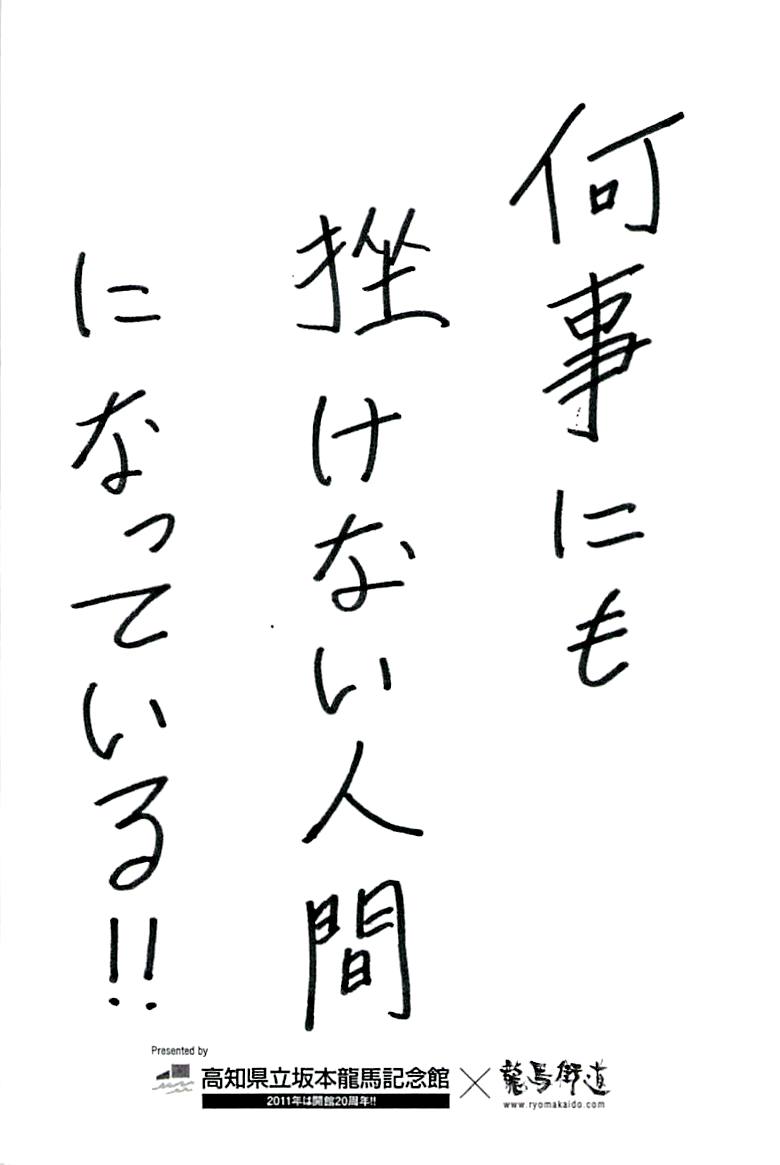 何事にも
挫けない人間
になっている!!
Presented by
高知県立坂本龍馬記念館
2011年は開館20周年!!
×
龍馬街道
www.ryomakaido.com